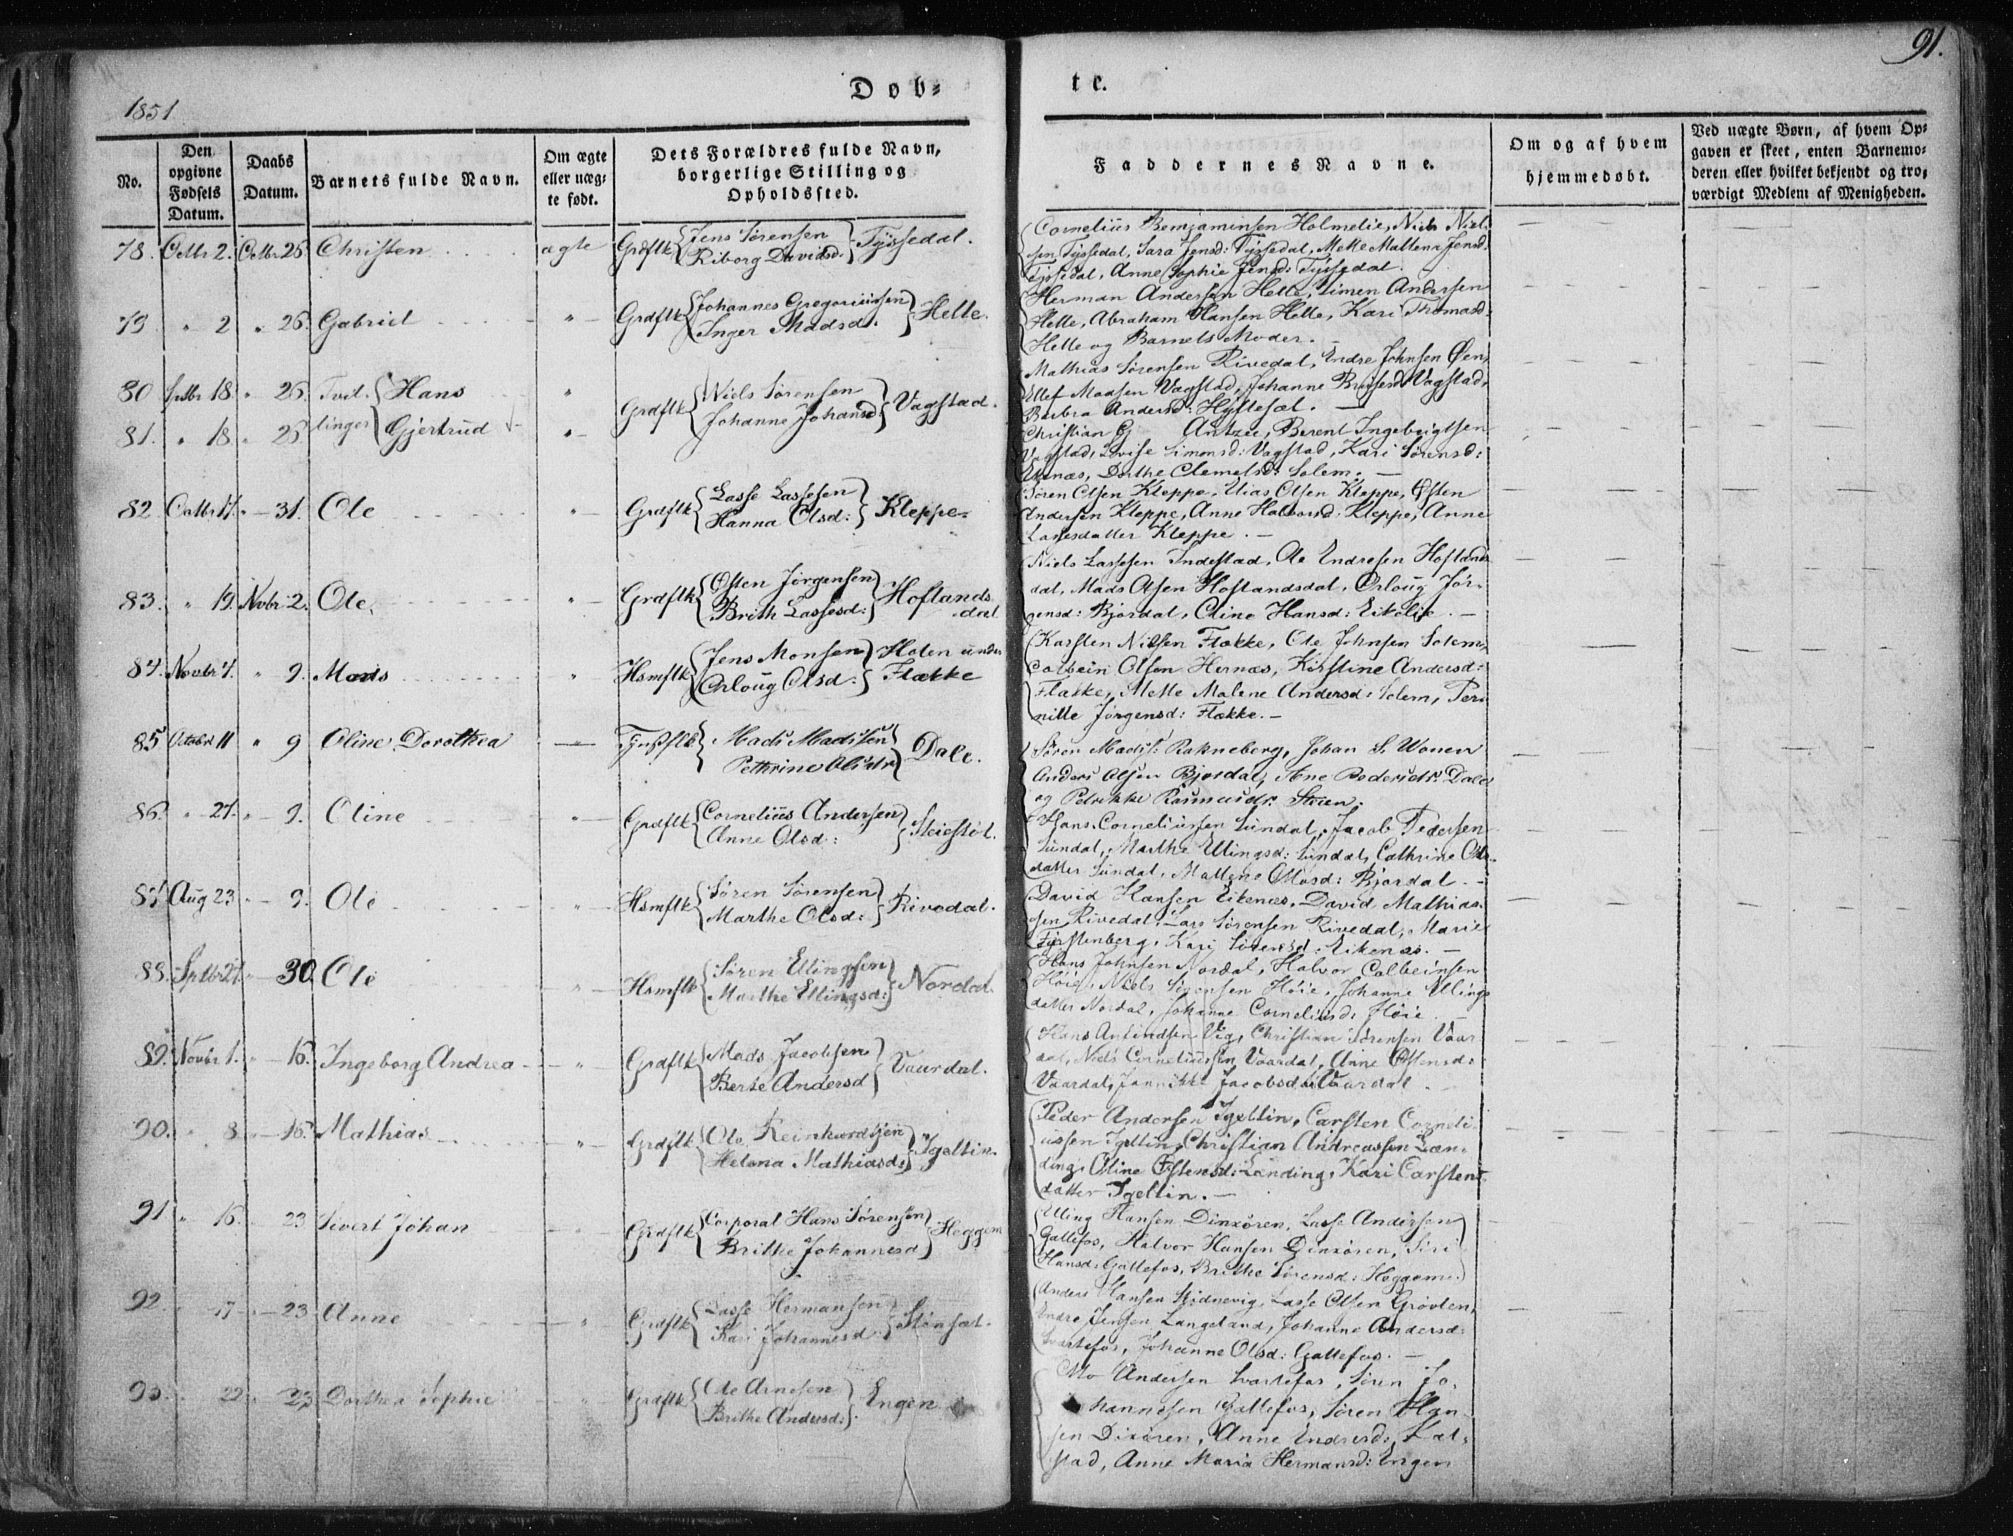 91.
1851
Døb=
te.
No.
Den opgivne Fødsels Datum.
Daabs Datum.
Barnets fulde Navn.
Om ægte eller uæg- te født.
Dets Forældres fulde Navn, borgerlige Stilling og Opholdssted.
Faddernes Navne.
Om og af hvem hjemmedøbt.
Ved uægte Børn, af hvem Op- gaven er skeet, enten Barnemo- deren eller hvilket bekjendt og tro- værdigt Medlem af Menigheden.
78. Octbr 2. Octbr 26. Christen ægte Grdflk Jens Sørensen Riborg Davidsd: Tyssedal.
Cornelius Benjaminsen Holmelie, Niels Niel-
sen Tyssedal, Sara Jensd: Tyssedal, Mette Mattena Jensd:
Tyssedal, Anne Sophie Jensd: Tyssedal.
79 " 2 " 26. Gabriel " Grdflk Johannes Gregoriussen Inger Madsd: Helle.
Herman Andersen Helle, Simen Andersen
Helle, Abraham Hansen Helle, Kari Thomasd:
Helle og Barnets Moder. -
80 Sptbr 18. " 26. Tvil- Hans "
81. " 18. " 26 linger Gjertrud " Grdflk Niels Sørensen Johanne Johansd: Vagstad.
Mathias Sørensen Rivedal, Endre Johnsen Øen,
Ellef Madsen Vagstad, Johanne Vagstad,
Barbra Andersd:
Christian G Antzee, Berent Ingebrigtsen
Vagstad, Lovise Simonsd: Vagstad, Kari Sørensd:
Dorthe Clemetsd: Solem. -
82 Octbr 17. " 31. Ole " Grdflk Lasse Lassesen Hanna Olsd: Kleppe.
Søren Olsen Kleppe, Elias Olsen Kleppe, Østen
Andersen Kleppe, Anne Halvorsd: Kleppe, Anne
Larsdatter Kleppe. -
83. " 19. Novbr 2. Ole. " Grdflk Østen Jørgensen Brith Lassesd: Hoflands dal
Niels Lassesen Indestad, Ole Endresen Hoflands
dal, Mads Olsen Hoflandsdal, Orloug Jør-
gensd: Bjordal, Oline Hansd: Eikelie. -
84. Novbr 4. " 9. Mads " Hsmflk Jens Monsen Orloug Olsd: Holen under Flække
Karsten Nilsen Flække, Ole Johnsen Solem,
Colbein Olsen Hernæs, Kirstine Andersd:
Flække, Mette Malene Andersd: Solem, Per-
nille Jørgensd: Flække. -
85 Octobr 11 " 9 Oline Dorothea Mads Madsen Pethrine Olsdr Dale.
Søren Madss: Rakneberg, Johan S. Wonen
Anders Olsen Bjordal, Ane Pedersdr. Dale
og Petrikke Rasmusdr. Steien.
86. " 27. " 9. Oline " Grdflk Cornelius Andersen Anne Olsd: Steiestøl.
Hans Corneliussen Sundal, Jacob Pedersen
Sundal, Marthe Ellingsd: Sundal, Cathrine Ols-
datter Sundal, Mattene Olsd: Bjordal. -
87 Aug 23. " 9. Ole " Hsmflk Søren Sørensen Marthe Olsd: Rivedal.
David Hansen Eikenæs, David Mathias-
sen Rivedal, Lars Sørensen Rivedal, Marie
Fürstenberg, Kari Sørensd: Eikenæs. -
88. Sptbr 27. " 30. Ole " Hsmflk Søren Ellingsen Marthe Ellingsd: Nordal.
Hans Johnsen Nordal, Halvor Colbeinsen
Høie, Niels Sørensen Høie, Johanne Ellings
datter Nordal, Johanne Corneliusd: Høie.
89. Novbr 1. " 16. Ingeborg Andrea " Grdflk Mads Jacobsen Berte Andersd Vaardal.
Hans Amundsen Vig, Christian Sørensen Vaar
dal, Niels Corneliussen Vaardal, Anne Østensd:
Vaardal, Jannikke Jacobsdatter Vaardal
90. " 8. " 16. Mathias " Grdflk Ole Reinhardtsen Helena Mathiasd: Igeltin.
Peder Andersen Igeltin, Carsten Corneli
ussen Igeltin, Christian Andreassen Læn-
ding, Oline Østensd: Lænding, Kari Carstens-
datter Igeltin. -
91 " 16. " 23 Sivert Johan " Grdflk Corporal Hans Sørensen Brithe Johannesd Heggem
Elling Hansen Dinxøren, Lasse Andersen
Gallefos, Halvor Hansen Dinxøren, Siri
Hansd: Gallefos, Brithe Sørensd: Heggem.
92. " 17 " 23. Anne " Grdflk Lasse Hermansen Kari Johannesd. Stensæt.
Anders Hansen Stidnevig, Lasse Olsen Grovlen,
Endre Jensen Langeland, Johanne Andersd:
Svartefos, Johanne Olsd: Gallefos. -
93. " 22 " 23 Dorthea Sophie " Grdflk Ole Arnesen Brithe Andersd: Engen
Mo Andersen Svartefos, Søren Jo-
hannesen Gallefos, Søren Han-
sen Dixøren, Anne Endresd: Kal-
stad, Anne Maria Hermansd: Engen